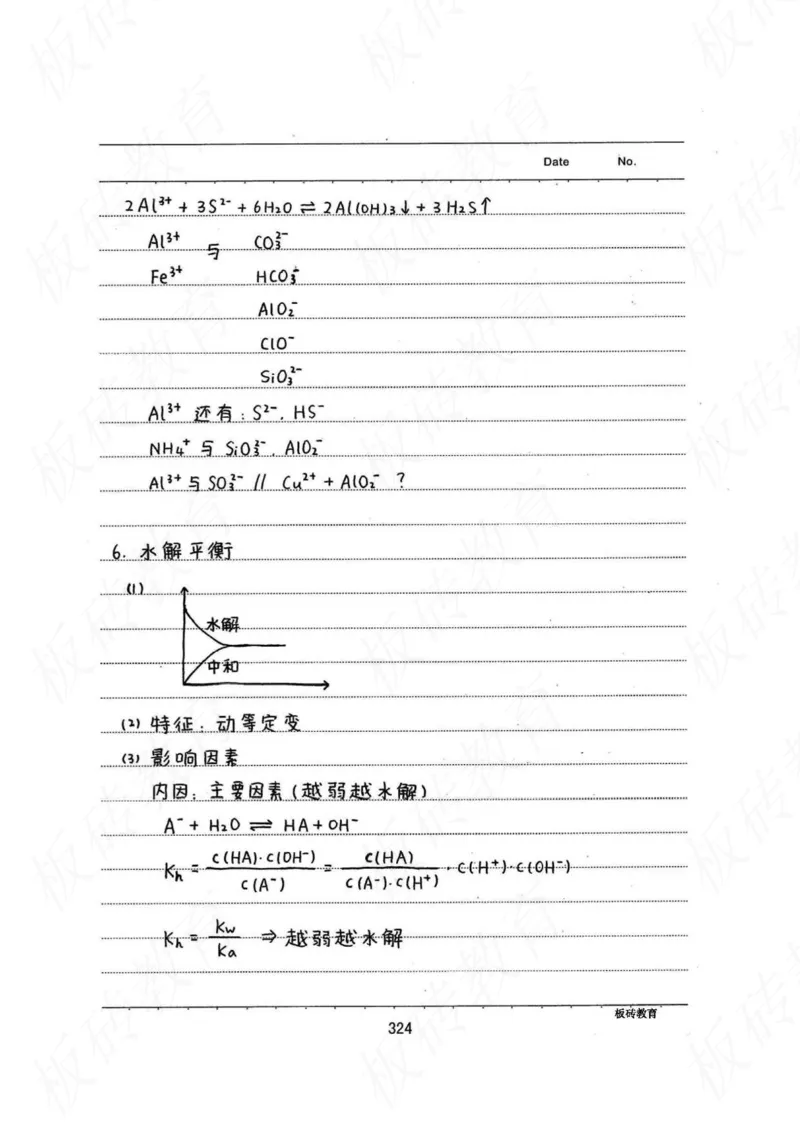 Date No.
2Al³⁺ + 3S²⁻ + 6H₂O ⇌ 2Al(OH)₃↓ + 3H₂S↑
Al³⁺ 与 CO₃²⁻
Fe³⁺ HCO₃⁻
AlO₂⁻
ClO⁻
SiO₃²⁻
Al³⁺ 还有: S²⁻. HS⁻
NH₄⁺ 与 SiO₃²⁻. AlO₂⁻
Al³⁺与SO₃²⁻ // Cu²⁺ + AlO₂⁻ ?
6. 水解平衡
(1)
水解
中和
(2) 特征: 动等定变
(3) 影响因素
内因: 主要因素(越弱越水解)
A⁻ + H₂O ⇌ HA + OH⁻
Kh = c(HA)·c(OH⁻) / c(A⁻) = c(HA) / c(A⁻)·c(H⁺) · c(H⁺)·c(OH⁻)
Kh = Kw / Ka ⇒ 越弱越水解
板砖教育
324